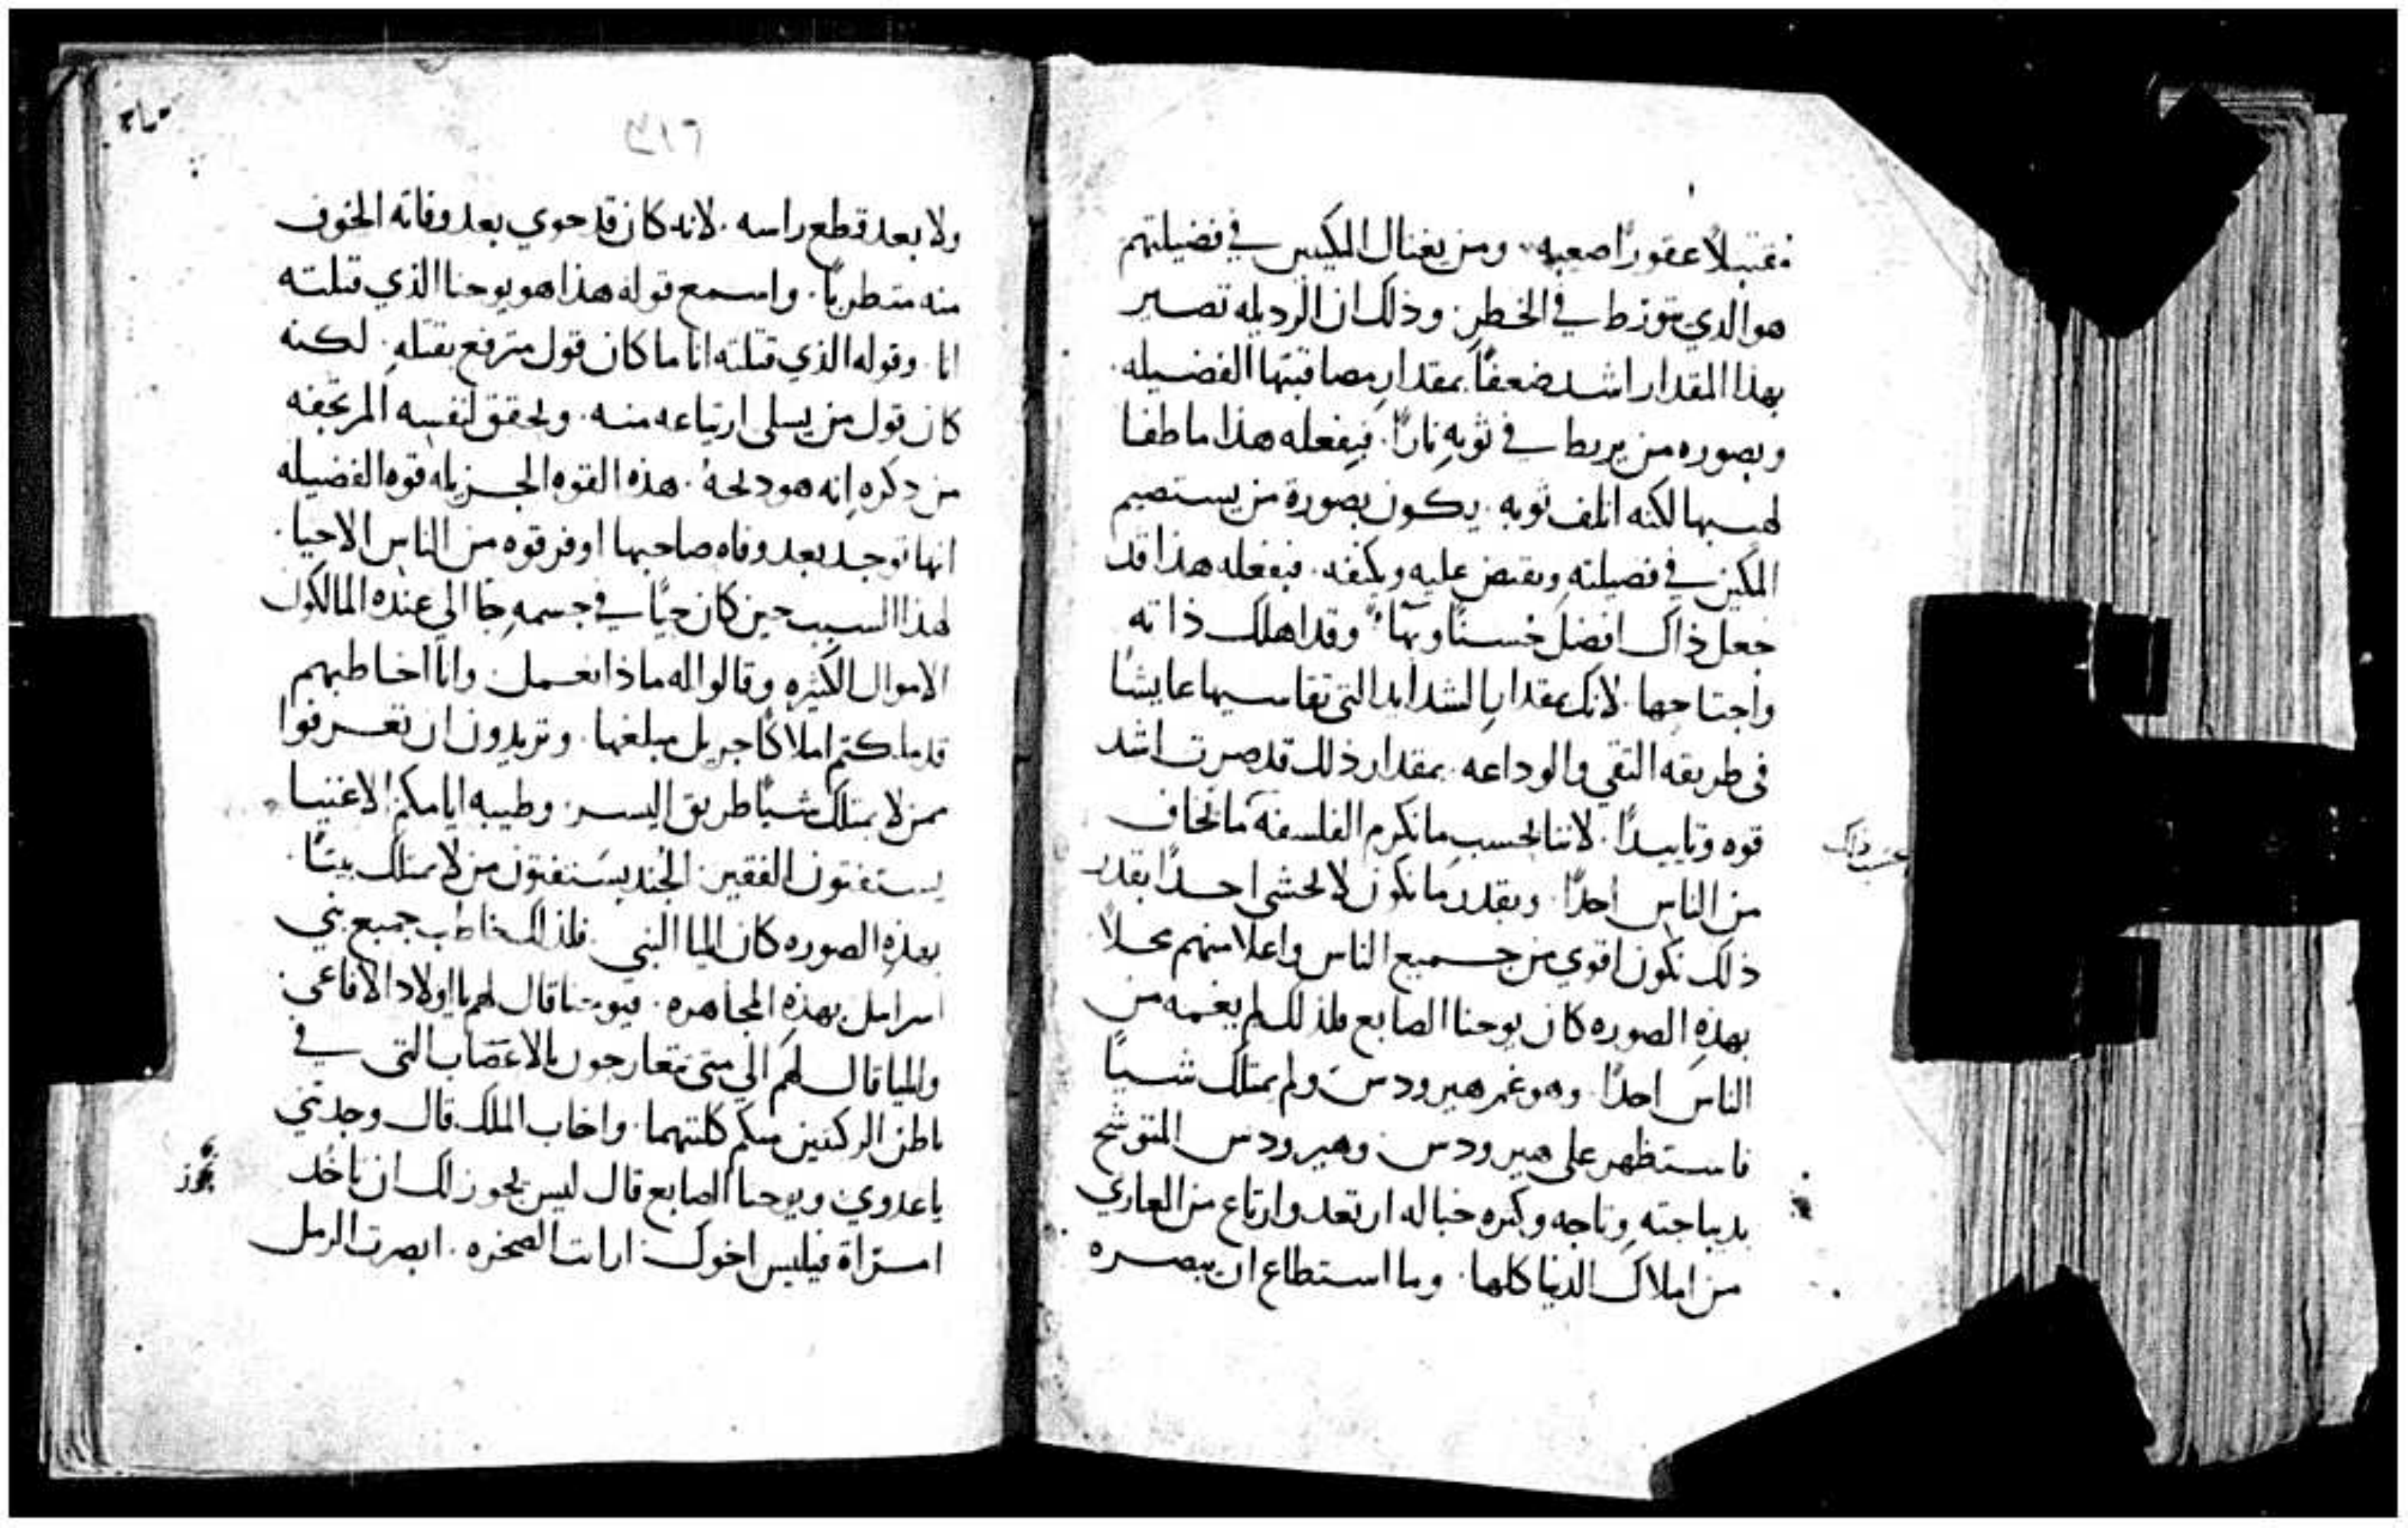 مقتبلاً عقوراً صعبه. ومن يغتال المكين في فضيلتهم
هو الدي يتورط في الخطر. وذلك ان الرديله تصير
بهدا المقدار اشد ضعفاً بمقدار مصاقبتها الفضيله.
وبصوره من يربط في ثوبه ناراً. فبفعله هذا ما طفا
لهيبها لكنه اتلف ثوبه. يكون بصورة من يستصيم
المكين في فضيلته ويقبض عليه ويكتفه. فبفعله هذا قد
جعل ذاك افضل حسناً وبهاً. وقد اهلك ذاته
واجتاحها. لانك بمقدار الشدايد التي تقاسيها عايشاً
في طريقه التقي والوداعه. بمقدار ذلك قد صرت اشد
قوه وتاييداً. لاننا بحسب ما نكرم الفلسفه ما نخاف
من الناس احداً. وبقدر ما نكون لا نخشي احداً بقدر
ذلك نكون اقوي من جميع الناس واعلا منهم محلاً.
بهذه الصوره كان يوحنا الصابغ فلذلك لم يغمه من
الناس احداً. وهو غم هيرودس ولم يمتلك شياً
فاستظهر على هيرودس. وهيرودس المتوشح
بديباجته وتاجه وكثره خياله ارتعد وارتاع من العاري
من املاك الدنيا كلها. وما استطاع ان يبصره
بحسب ذلك
٣١٦
ولا بعد قطع راسه. لانه كان قد حوي بعد وفاته الخوف
منه متطرياً. واسمع قوله هذا هو يوحنا الذي قتلته
انا. وقوله الذي قتلته انا ما كان قول مترفع بقتله. لكنه
كان قول من يسلي ارتياعه منه. ويحقق لنفسه المرتجفه
من دكره انه هو دبحه. هذه القوه الجزيله قوه الفضيله
انها توجد بعد وفاه صاحبها اوفر قوه من الناس الاحيا.
لهذا السبب حين كان حياً في جسمه جا الي عنده المالكون
الاموال الكثيره وقالوا له ماذا نعمل. وانا اخاطبهم
قد ملكتم املاكاً جزيل مبلغها. وتريدون ان تعرفوا
ممن لا يمتلك شياً طريق اليسر. وطيبه ايامكم الاغنيا
يستفتون الفقير. الجند يستفتون من لا يمتلك بيتاً.
بهذه الصوره كان ايليا النبي. فلذلك خاطب جميع بني
اسراييل بهذه المجاهره. فيوحنا قال لهم يا اولاد الافاعي.
وايليا قال لهم الي متي تتعارجون بالاعتصاب التي في
باطن الركبتين منكم كلتيهما. واخاب الملك قال وجدتني
يا عدوي. ويوحنا الصابغ قال ليس يجوز لك ان تاخد
امرأة فيلبس اخوك. ارايت الصخره. ابصرت الرمل
يجوز